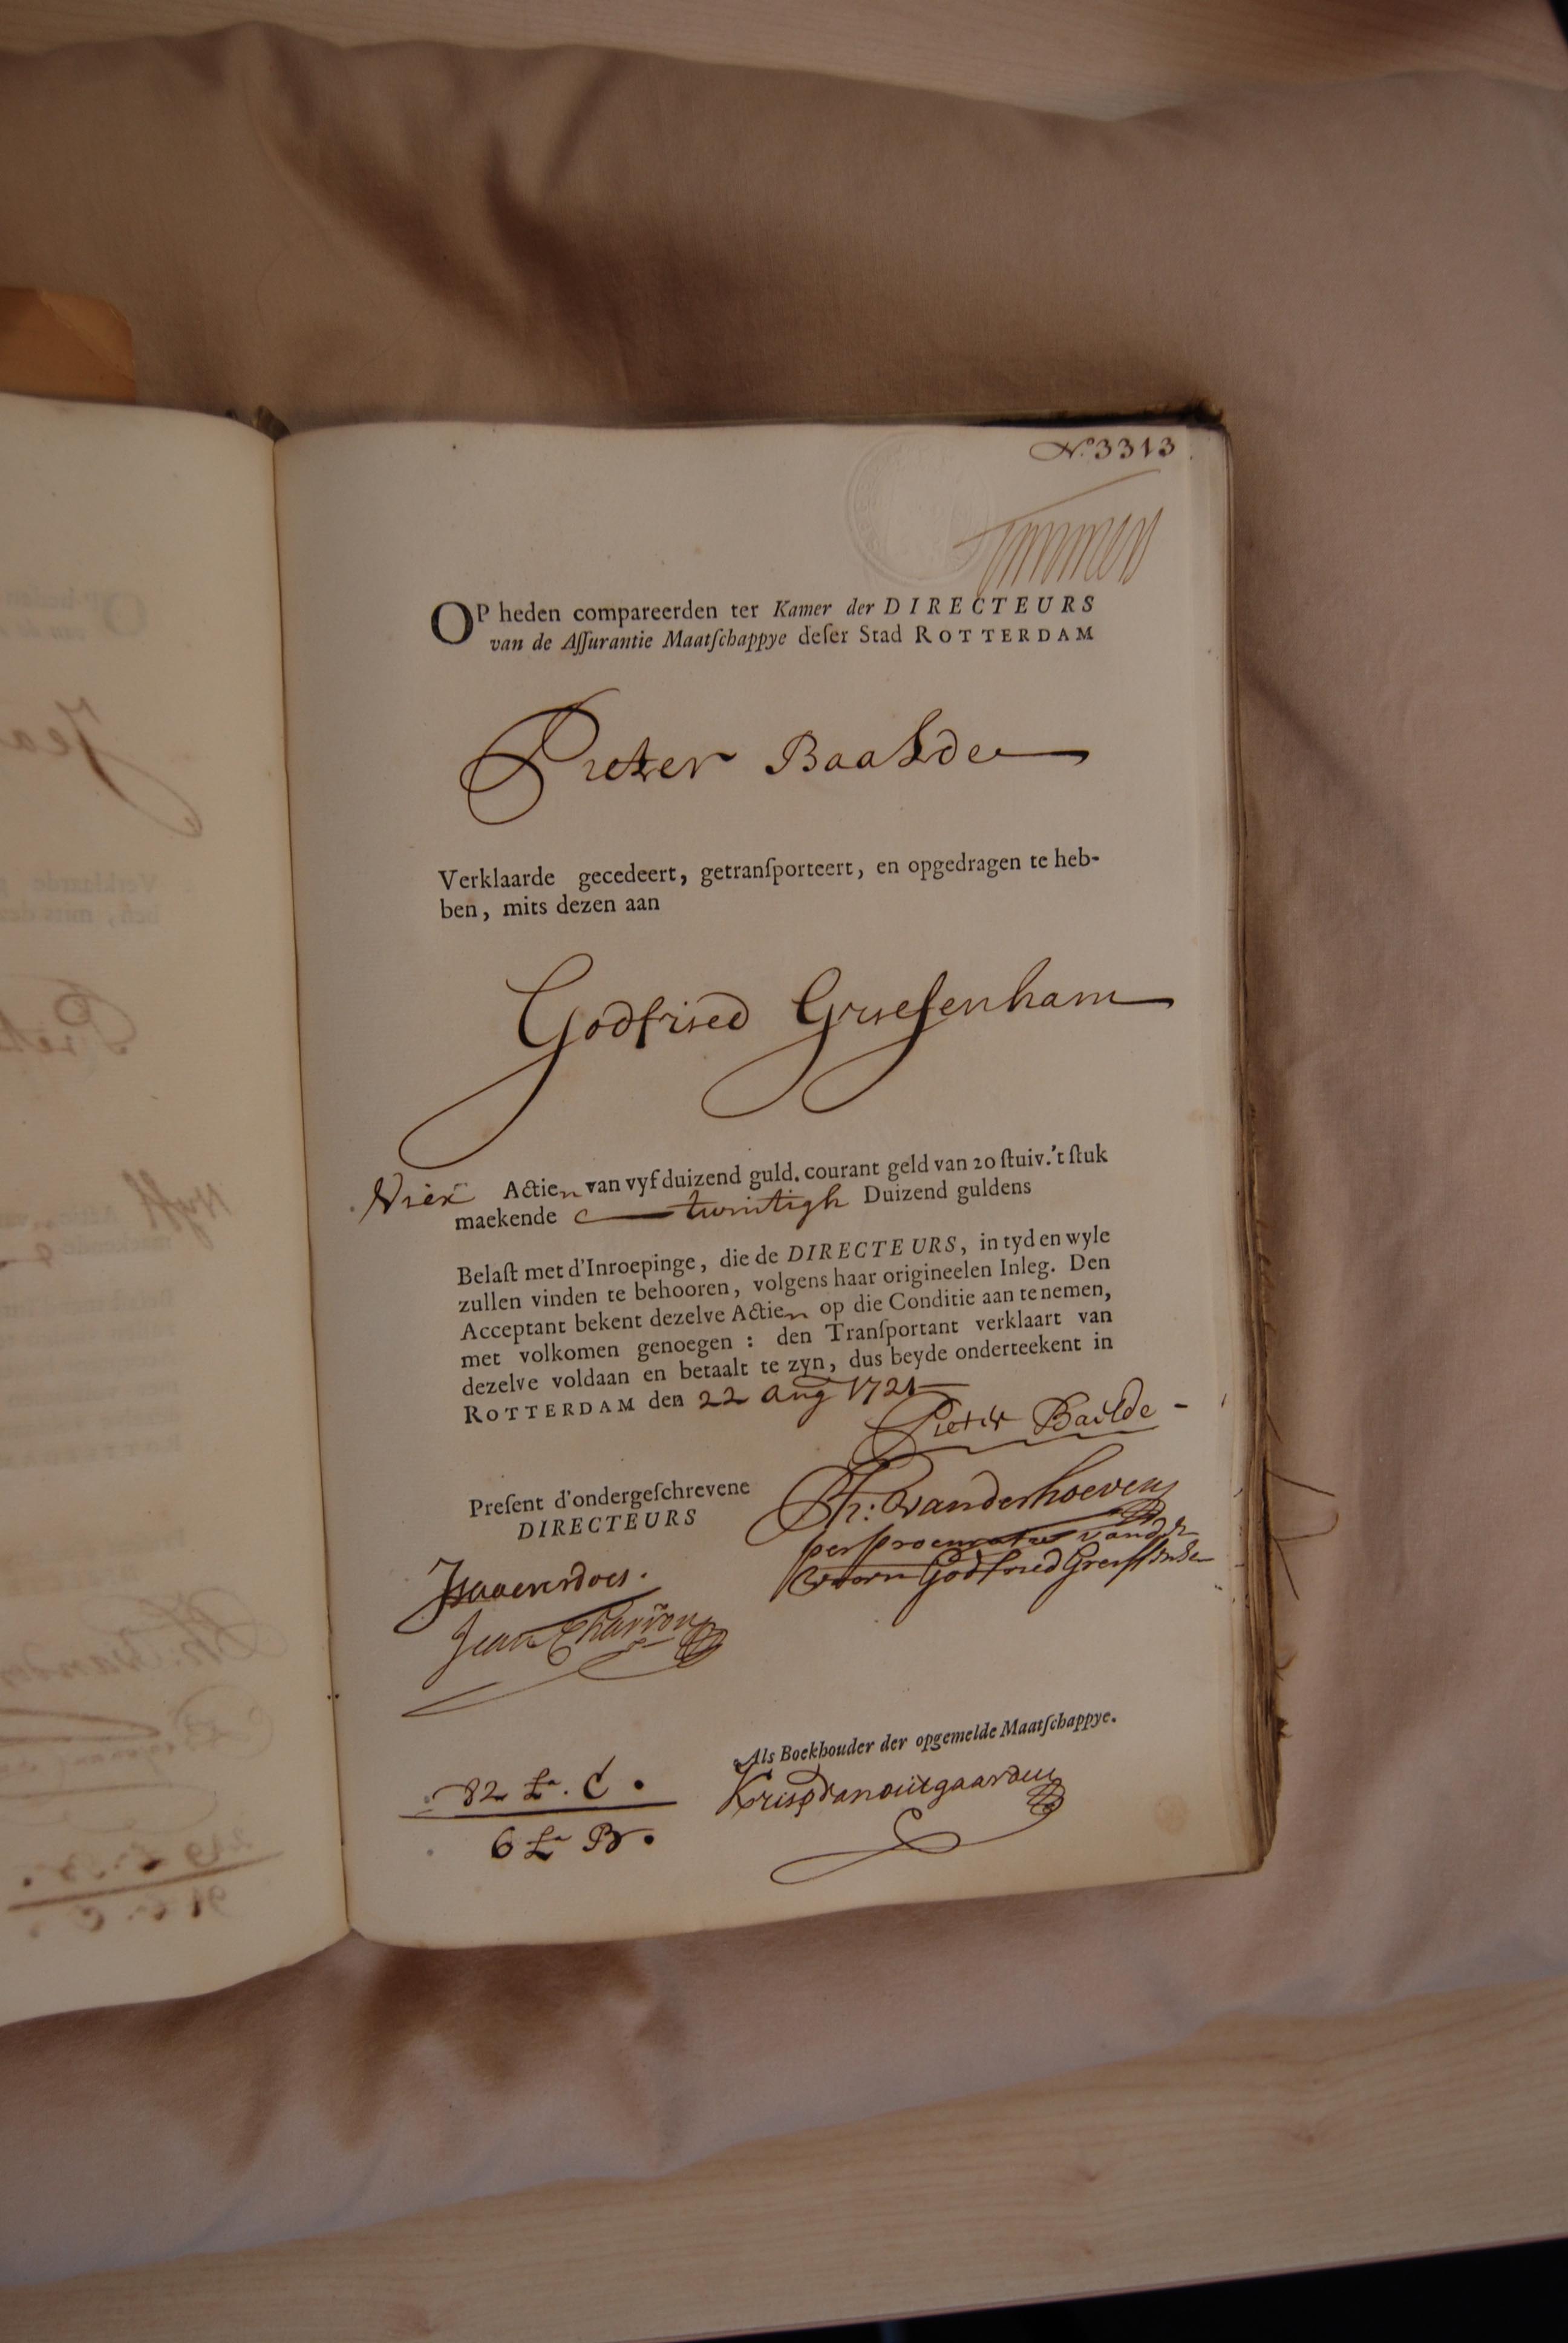 No. 3313
OP heden compareerden ter Kamer der DIRECTEURS
van de Aſſurantie Maatſchappye deſer Stad ROTTERDAM
Pieter Baalde
Verklaarde gecedeert, getranſporteert, en opgedragen te heb-
ben, mits dezen aan
Godfried Grieſenham
Vier Actien van vyf duizend guld. courant geld van 20 ſtuiv. 't ſtuk
maekende twintigh Duizend guldens
Belaſt met d'Inroepinge, die de DIRECTEURS, in tyd en wyle
zullen vinden te behooren, volgens haar origineelen Inleg. Den
Acceptant bekent dezelve Actien op die Conditie aan te nemen,
met volkomen genoegen : den Tranſportant verklaart van
dezelve voldaan en betaalt te zyn, dus beyde onderteekent in
ROTTERDAM den 22 aug 1721
Pieter Bailde
Ph: vanderhoeven
per procuratie vande
voorn Godfried
Preſent d'ondergeſchrevene
DIRECTEURS
Jean Charron
Als Boekhouder der opgemelde Maatſchappye.
82 La. C.
6 La B.